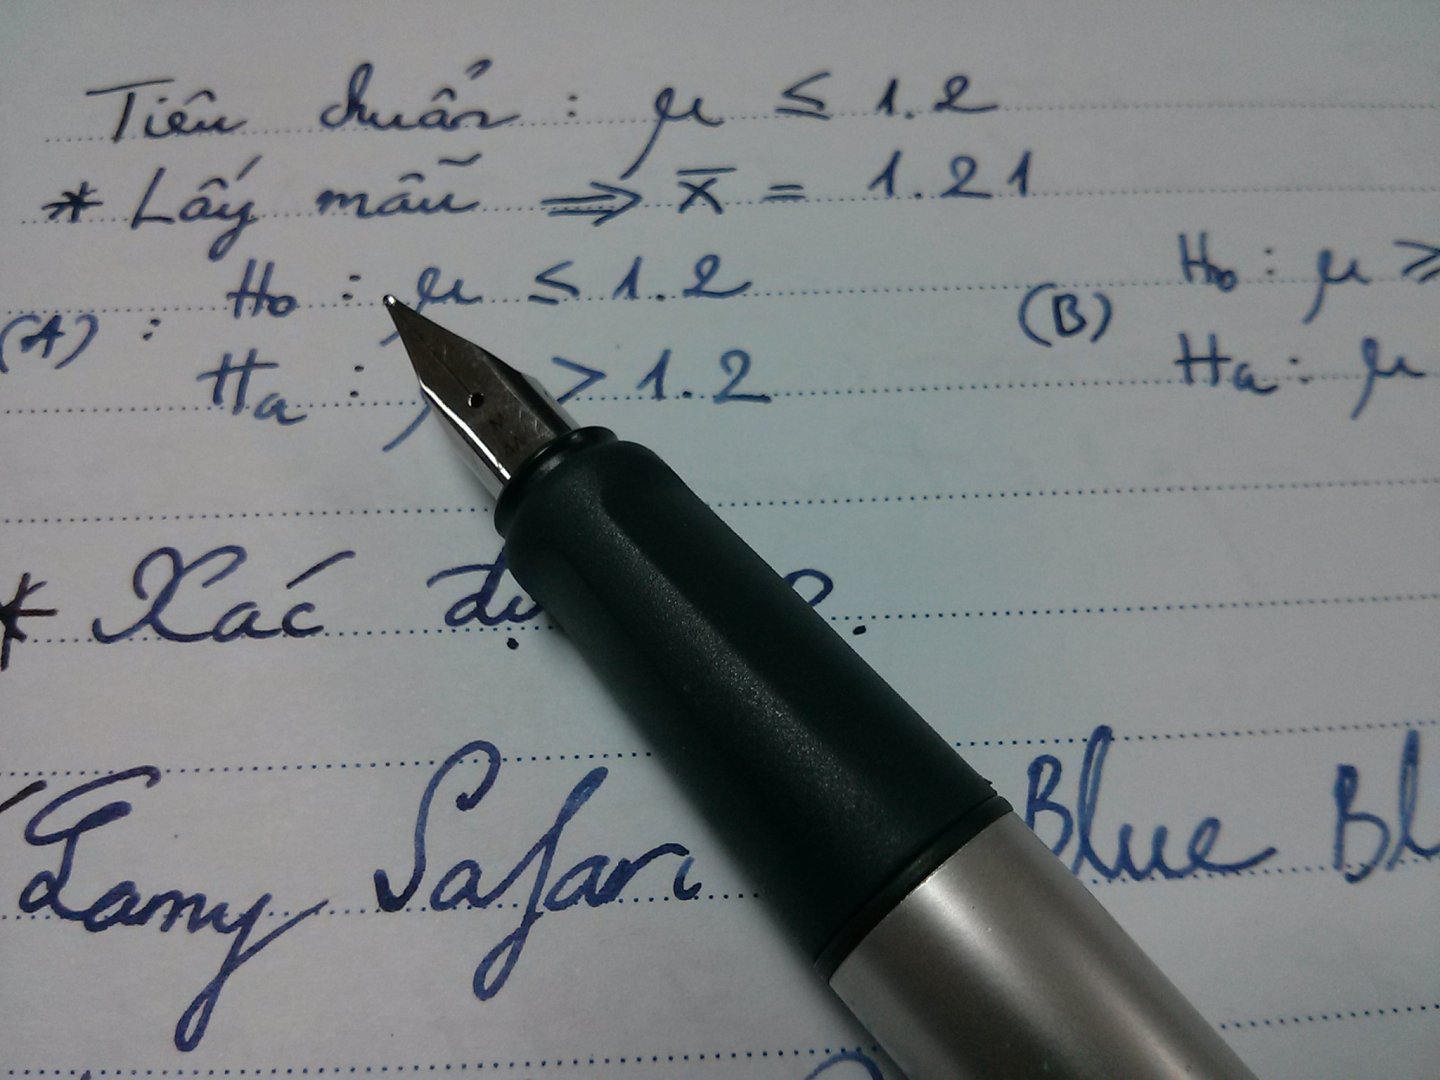 Tiêu chuẩn : μ ≤ 1.2
* Lấy mẫu ⇒ x̄ = 1.21
(A) : H₀ : μ ≤ 1.2 (B) H₀ : μ ≥
Hₐ : μ > 1.2 Hₐ : μ
* Xác ?
Lamy Safari Blue Bl